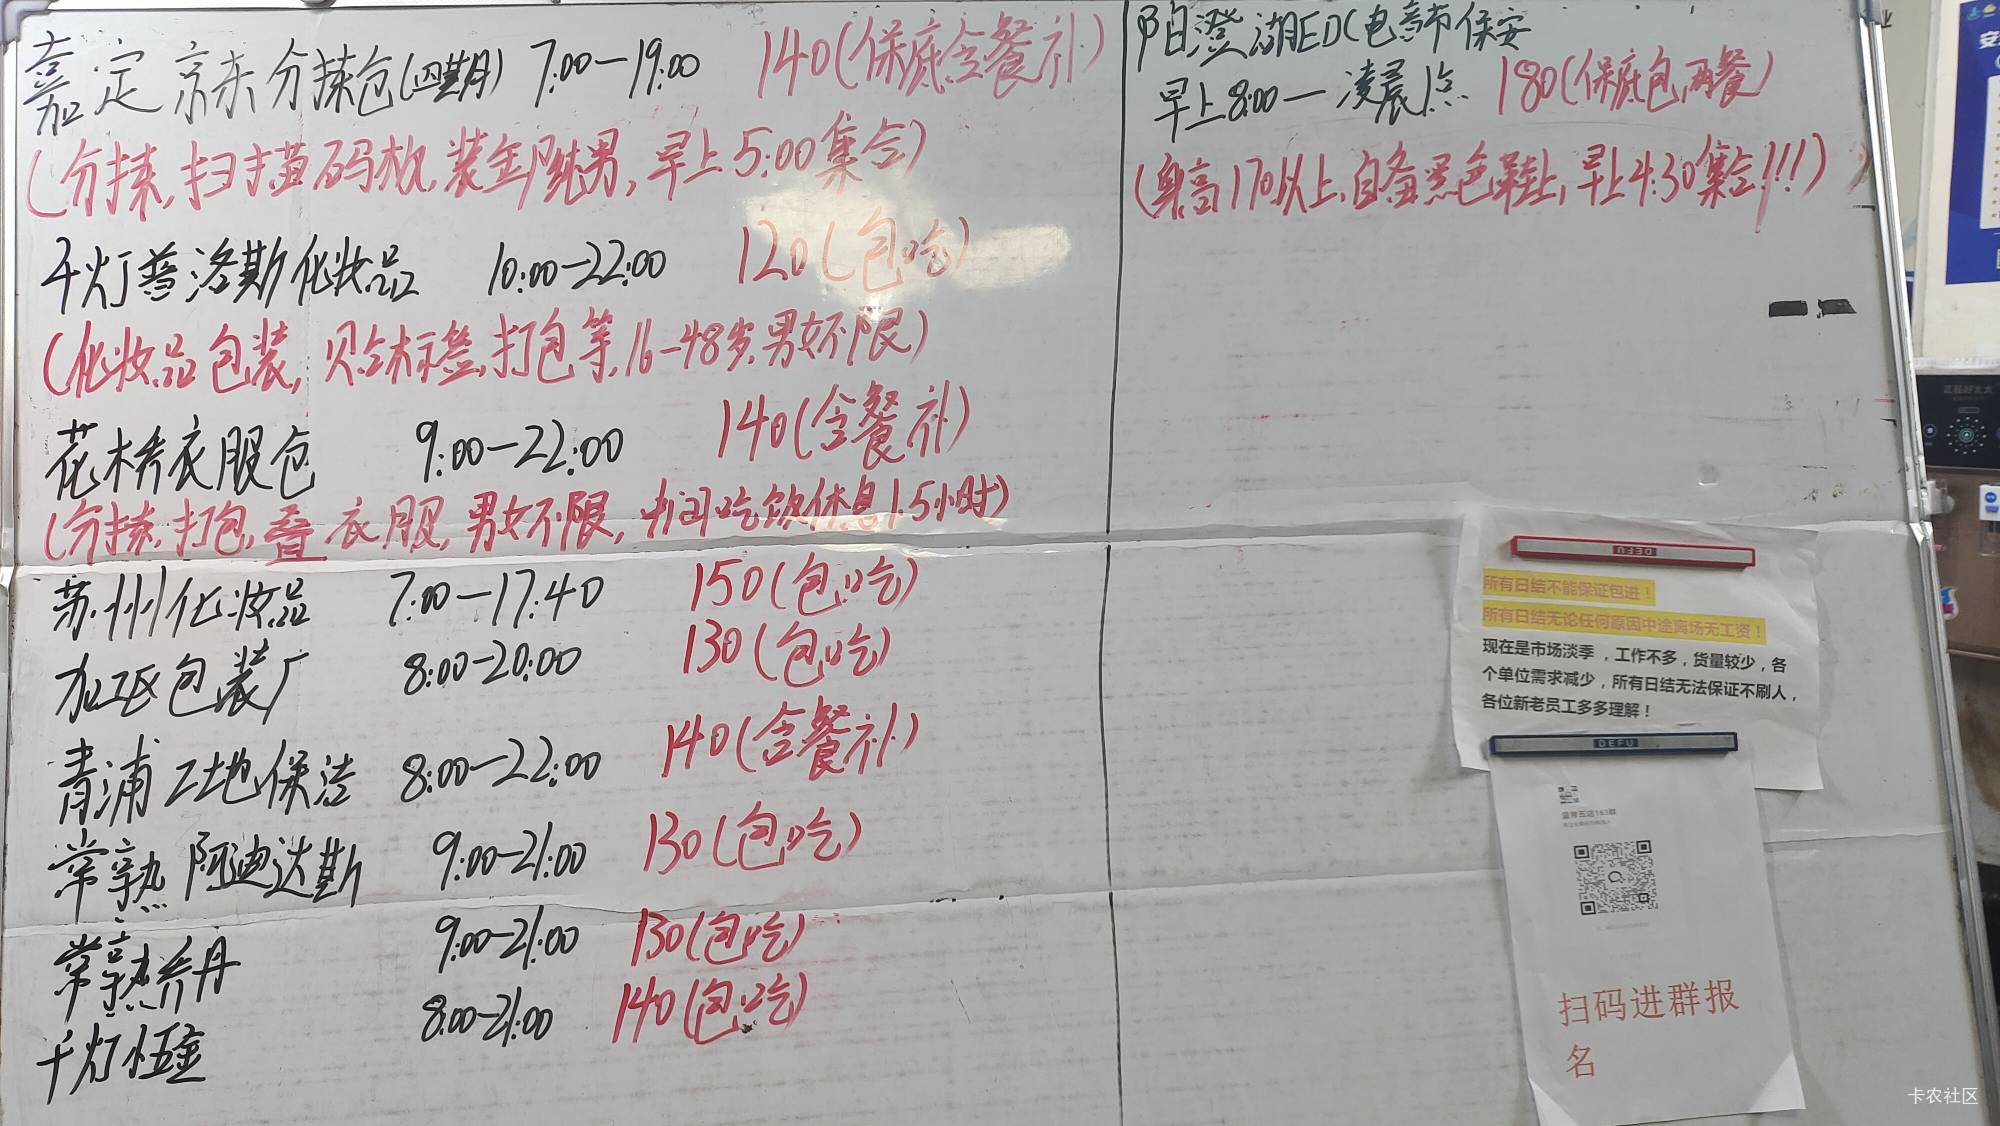 嘉定京东分拣仓(四期) 7:00—19:00 140(保底含餐补)
(分拣,扫描码放,装车,纯男,早上5:00集合)
千灯普洛斯化妆品 10:00—22:00 120(包吃)
(化妆品包装,贴标签,打包等,16-48岁,男女不限)
花桥衣服仓 9:00—22:00 140(含餐补)
(分拣,打包,叠衣服,男女不限,中间吃饭休息1.5小时)
苏州化妆品 7:00—17:40 150(包吃)
包装厂 8:00-20:00 130(包吃)
青浦工地保洁 8:00—22:00 140(含餐补)
常熟阿迪达斯 9:00-21:00 130(包吃)
常熟乔丹 9:00-21:00 130(包吃)
千灯 8:00-21:00 140(包吃)
阳澄湖EDC电音节保安
早上8:00—凌晨1点 180(保底包两餐)
(身高170以上,自备黑色鞋,早上4:30集合!!!)
DEFU
所有日结不能保证包进!
所有日结无论任何原因中途离场无工资!
现在是市场淡季,工作不多,货量较少,各
个单位需求减少,所有日结无法保证不刷人,
各位新老员工多多理解!
DEFU
扫码进群报
名
卡农社区